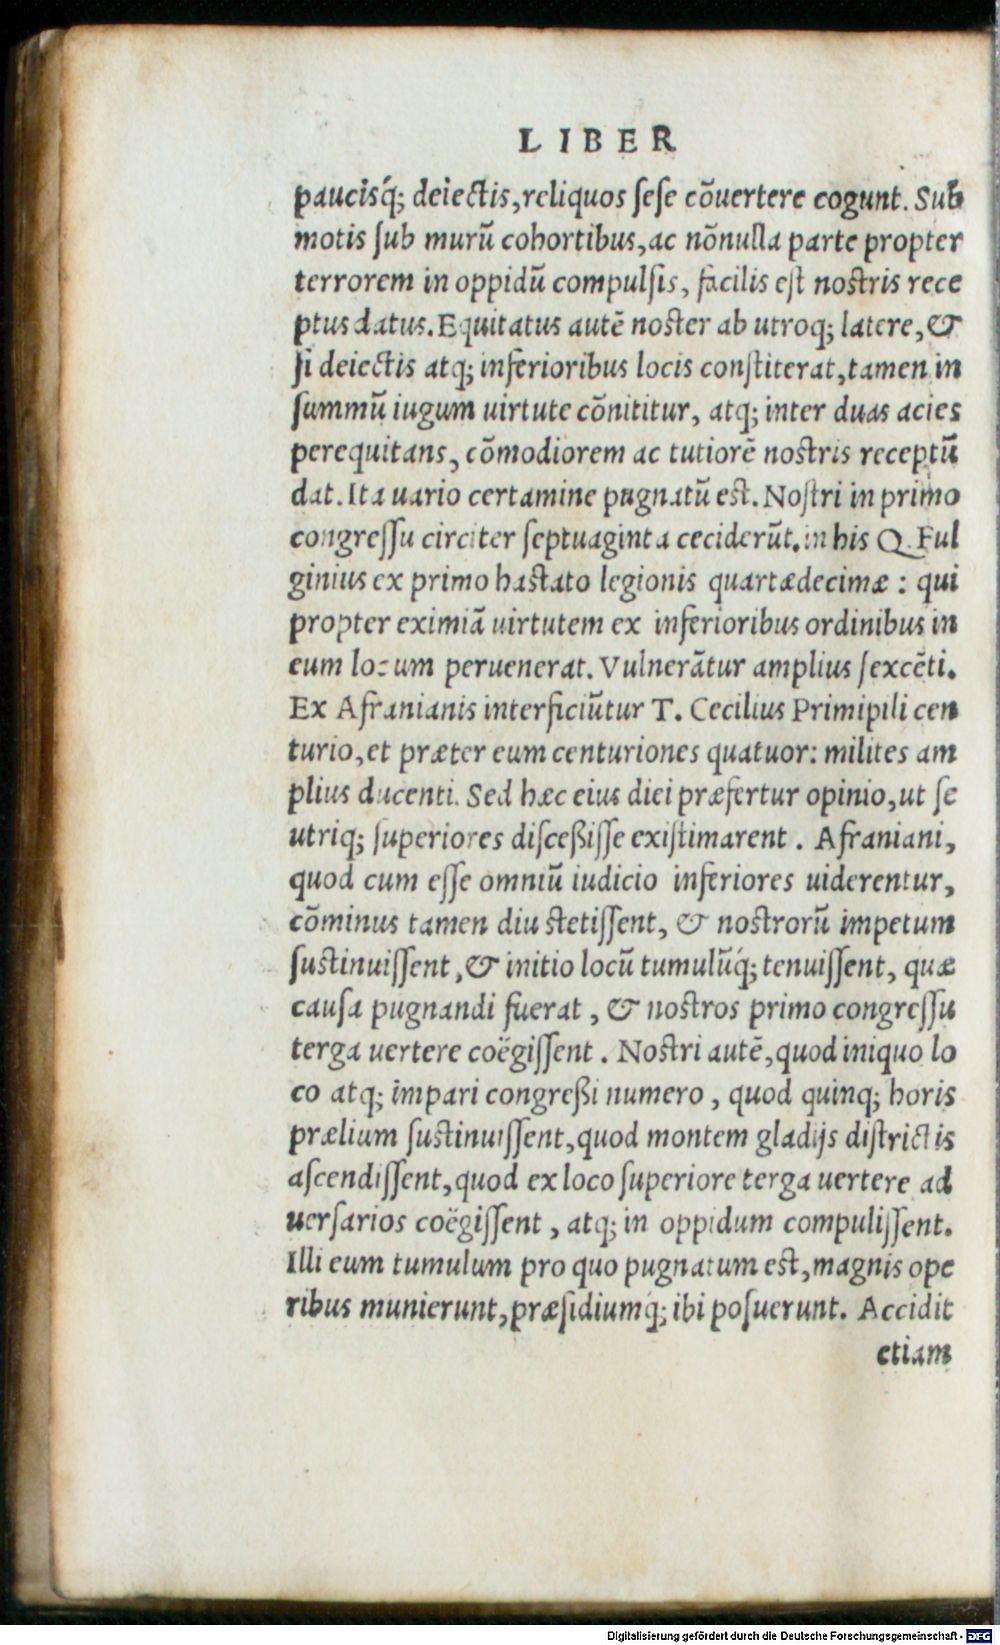 LIBER
paucisq́; deiectis, reliquos ſeſe cōuertere cogunt. Sub
motis ſub murū cohortibus, ac nōnulla parte propter
terrorem in oppidū compulſis, facilis eſt noſtris rece
ptus datus. Equitatus autē noſter ab utroq; latere, &
ſi deiectis atq; inferioribus locis conſtiterat, tamen in
ſummū iugum uirtute cōnititur, atq; inter duas acies
perequitans, cōmodiorem ac tutiorē noſtris receptū
dat. Ita uario certamine pugnatū eſt. Noſtri in primo
congreſſu circiter ſeptuaginta ceciderūt. in his Q. Ful
ginius ex primo haſtato legionis quartædecimæ : qui
propter eximiā uirtutem ex inferioribus ordinibus in
eum locum peruenerat. Vulnerātur amplius ſexcēti.
Ex Afranianis interficiūtur T. Cecilius Primipili cen
turio, et præter eum centuriones quatuor: milites am
plius ducenti. Sed hæc eius diei præfertur opinio, ut ſe
utriq; ſuperiores diſceßiſſe exiſtimarent . Afraniani,
quod cum eſſe omniū iudicio inferiores uiderentur,
cōminus tamen diu ſtetiſſent, & noſtrorū impetum
ſuſtinuiſſent, & initio locū tumulūq́; tenuiſſent, quæ
cauſa pugnandi fuerat , & noſtros primo congreſſu
terga uertere coëgiſſent . Noſtri autē, quod iniquo lo
co atq; impari congreßi numero , quod quinq; horis
prælium ſuſtinuiſſent, quod montem gladijs diſtrictis
aſcendiſſent, quod ex loco ſuperiore terga uertere ad
uerſarios coëgiſſent , atq; in oppidum compuliſſent.
Illi eum tumulum pro quo pugnatum eſt, magnis ope
ribus munierunt, præſidiumq́; ibi poſuerunt. Accidit
etiam
Digitalisierung gefördert durch die Deutsche Forschungsgemeinschaft - DFG